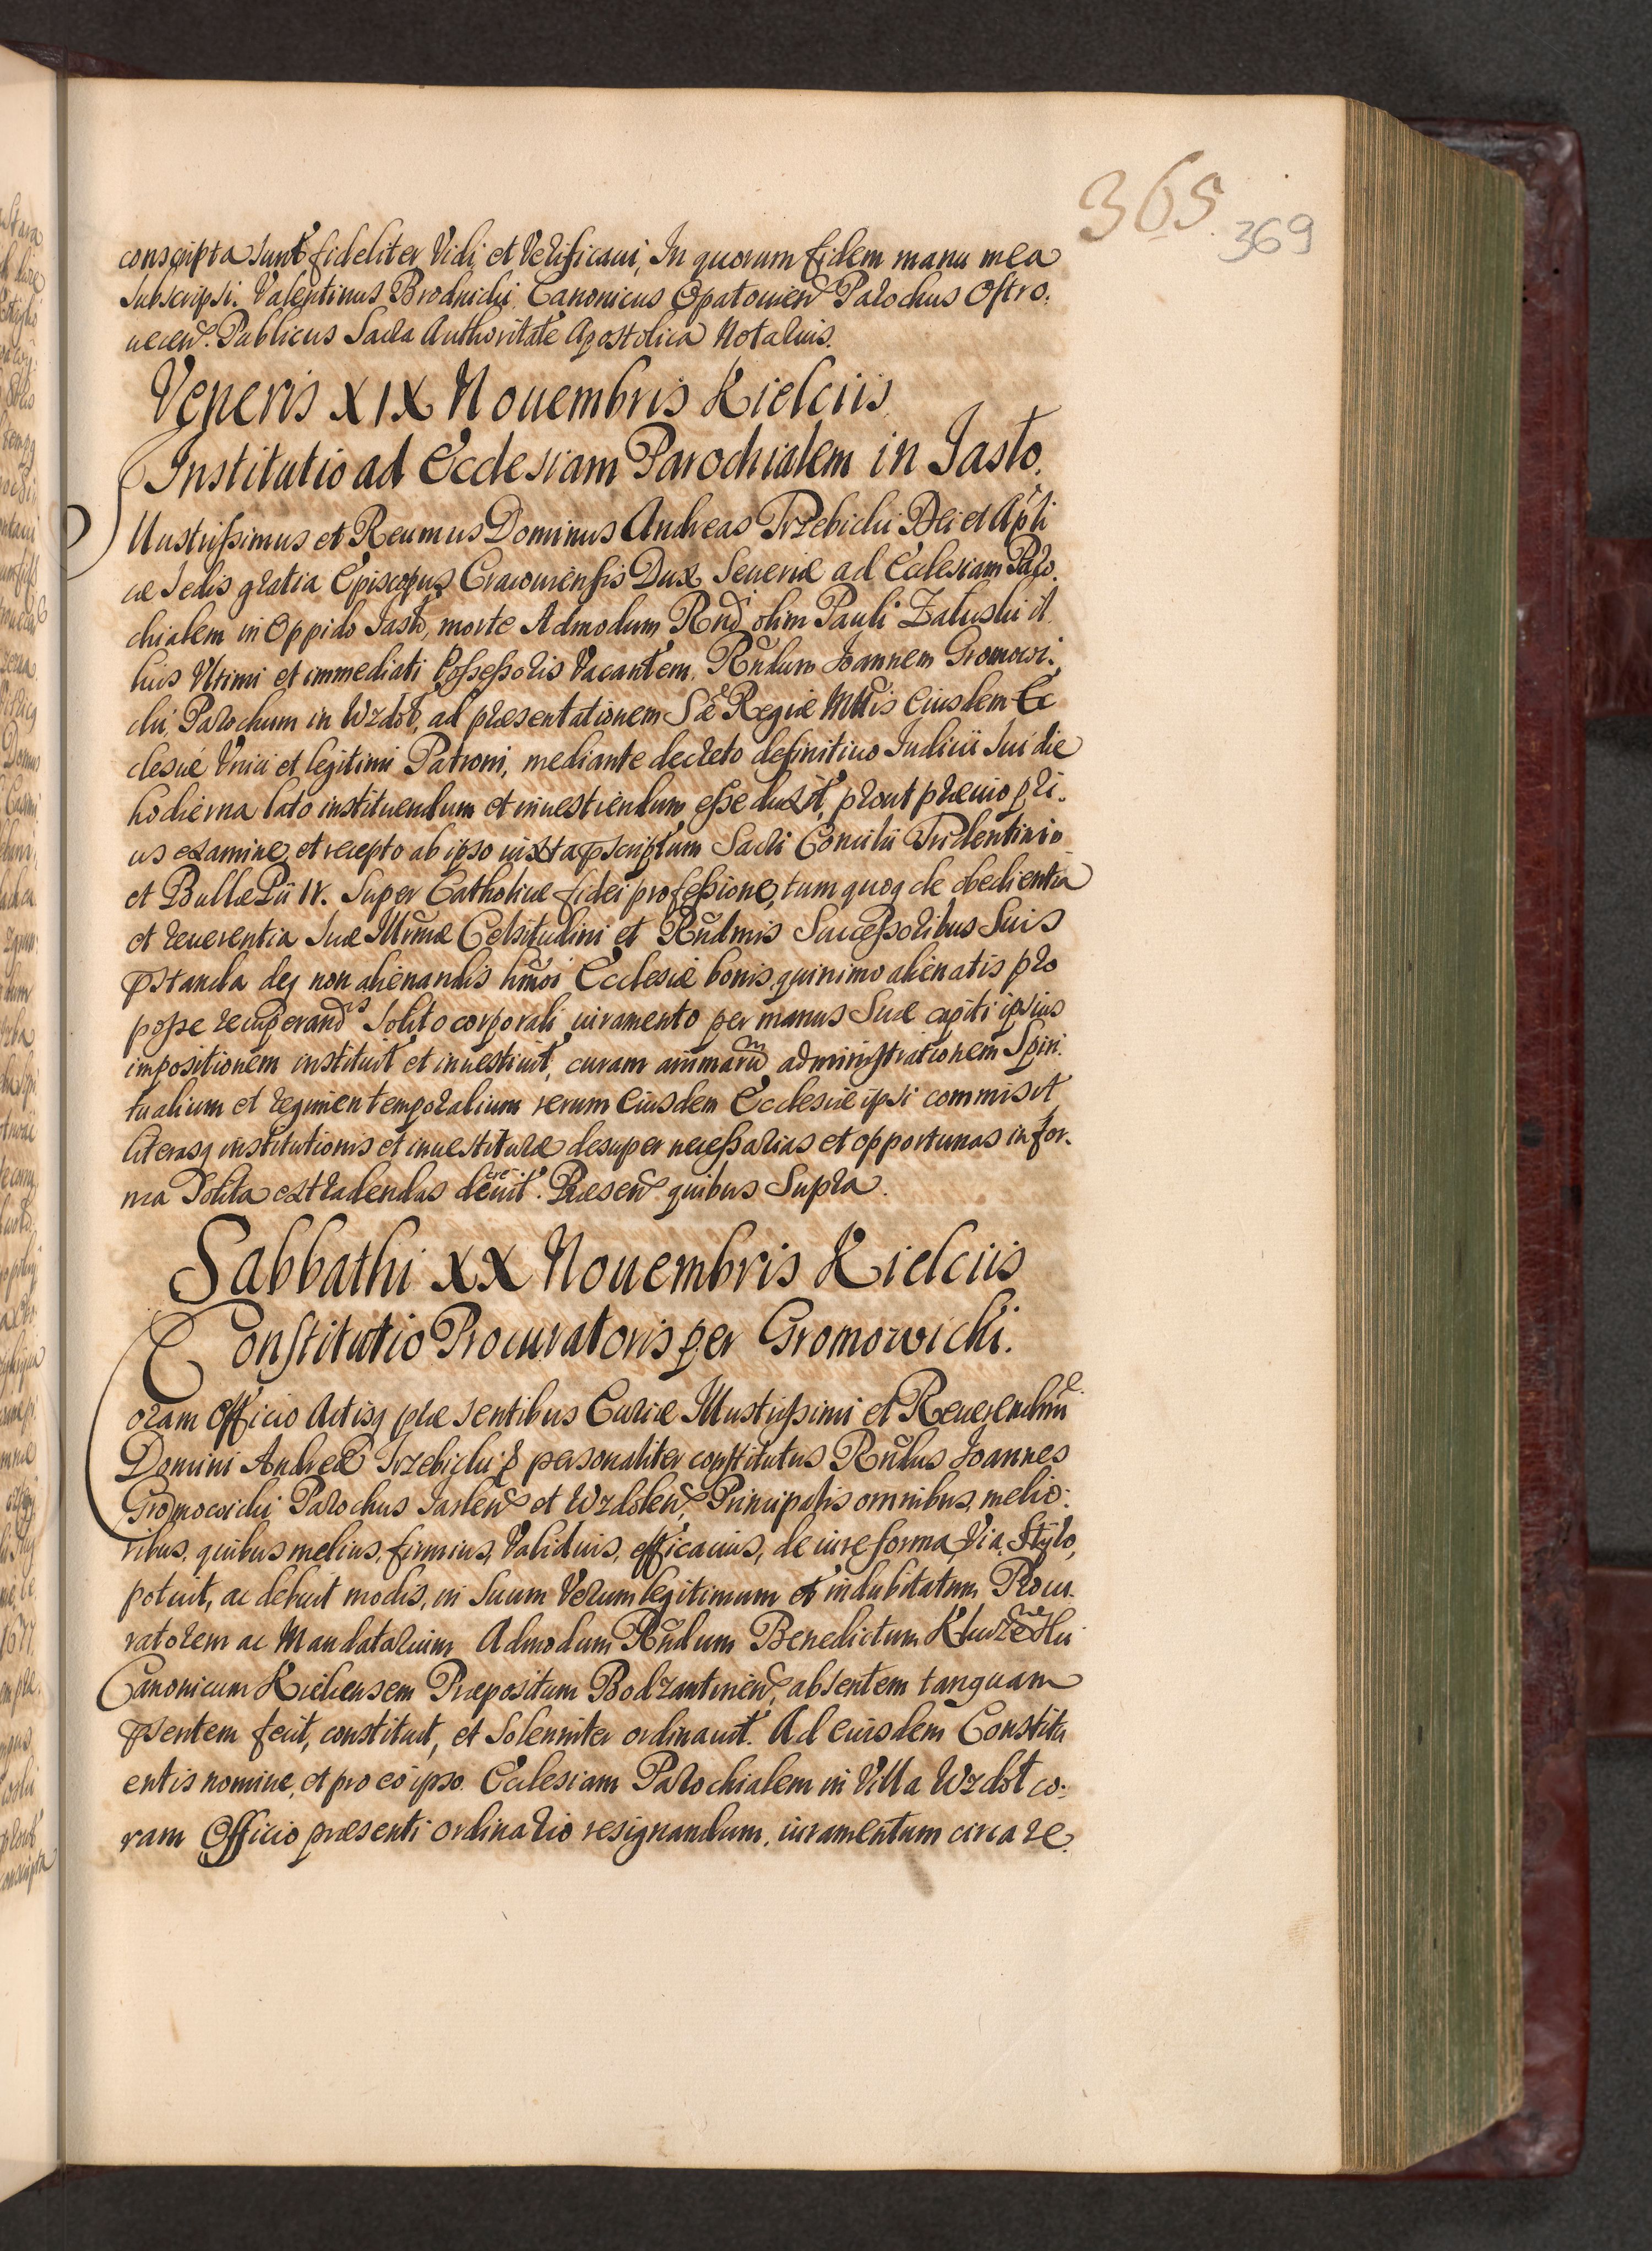 365.
369
conscripta sunt fideliter Vidi et Verificaui, In quorum fidem manu mea
Subscripsi. Valentinus Brodnicki Canonicus Opatouien Parochus Ostro-
uecen. Publicus Sacra Authoritate Apostolica Notarius.
Veneris XIX Nouembris Kielciis
Institutio ad Ecclesiam Parochialem in Jasło.
Illustrissimus et Reumus Dominus Andreas Trzebicki Dei et Apli
cæ Sedis gratia Episcopus Cracouiensis Dux Seueriæ ad Ecclesiam Paro-
chialem in Oppido Jasło, morte Admodum Rnd olim Pauli Załuski il-
lius Vltimi et immediati Possessoris Vacantem, Rndum Joannem Gromowi-
cki, Parochum in Wzdoł, ad præsentationem Sæ Regiæ Mttis Eiusdem Ec
clesiæ Vnici et legitimi Patroni, mediante decreto definitiuo Iudicii Sui die
hodierna lato instituendum et inuestiendum esse duxit, prout præuio pri-
us examine, et recepto ab ipso iuxta pscriptum Sacri Concilii Tridentini
et Bullæ Pii IV. Super Catholicæ fidei professione, tum quoq de obedientia
et reuerentia Suæ Illrmæ Celsitudini et Rndmis Successoribus Suis
pstanda deq non alienandis hmoi Ecclesiæ bonis, quinimo alienatis pro
posse recuperandis Solito corporali iuramento per manus Suæ capiti ipsius
impositionem instituit et inuestiuit, curam animarum administrationem Spiri-
tualium et regimen temporalium rerum Eiusdem Ecclesiæ ipsi commisit
literasq institutionis et inuestituræ desuper necessarias et opportunas in for-
ma Solita extradendas decreuit. Præsen quibus Supra.
Sabbathi XX Nouembris Kielciis
Constitutio Procuratoris per Gromowicki.
Coram Officio Actisq præsentibus Curiæ Illustrissimi et Reuerendmi
Domini Andreæ Trzebicki p personaliter constitutus Rndus Joannes
Gromowicki Parochus Jaslen et Wzdolen, Principalis omnibus, melio-
ribus, quibus melius, firmius, Validius, efficacius, de iure forma, Via, Stylo,
potuit, ac debuit modis, in Suum Verum legitimum et indubitatum Procu-
ratorem ac Mandatarium Admodum Rndum Benedictum
Canonicum Kielcensem Præpositum Bodzantinen, absentem tanquam
psentem fecit, constituit, et Solenniter ordinauit. Ad eiusdem Constitu
entis nomine, et pro eo ipso Ecclesiam Parochialem in Villa Wzdoł co-
ram Officio præsenti ordinario resignandum, iuramentum circa re-